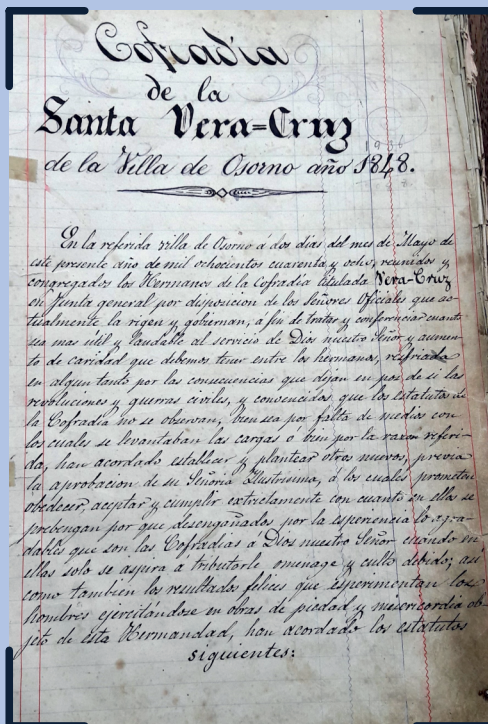 Cofradia
de la
Santa Vera=Cruz
de la Villa de Osorno año 1848.
En la referida villa de Osorno á dos dias del mes de Mayo de
este presente año de mil ochocientos cuarenta y ocho, reunidos y
congregados los Hermanos de la Cofradia titulada Vera-Cruz
en Junta general por disposicion de los Señores Oficiales que ac-
tualmente la rigen y gobiernan, á fin de tratar y conferenciar cuanto
sea mas util y laudable al servicio de Dios nuestro Señor y aumen-
to de caridad que debemos tener entre los hermanos, resfriada
en algun tanto por las consecuencias que dejan en pos de si las
revoluciones y guerras civiles, y convencidos que los estatutos de
la Cofradia no se observan, bien sea por falta de medios con
los cuales se levantaban las cargas o bien por la razon referi-
da, han acordado establecer y plantear otros nuevos, previa
la aprobacion de su Señoria Ilustrisima, á los cuales prometen
obedecer, aceptar y cumplir extrictamente con cuanto en ellos se
prebengan por que desengañados por la esperiencia lo agra-
dables que son las Cofradias á Dios nuestro Señor cuando en
ellas solo se aspira a tributarle omenage y culto debido; asi
como tambien los resultados felices que esperimentan los
hombres ejercitándose en obras de piedad y misericordia ob-
jeto de esta Hermandad, han acordado los estatutos
siguientes: